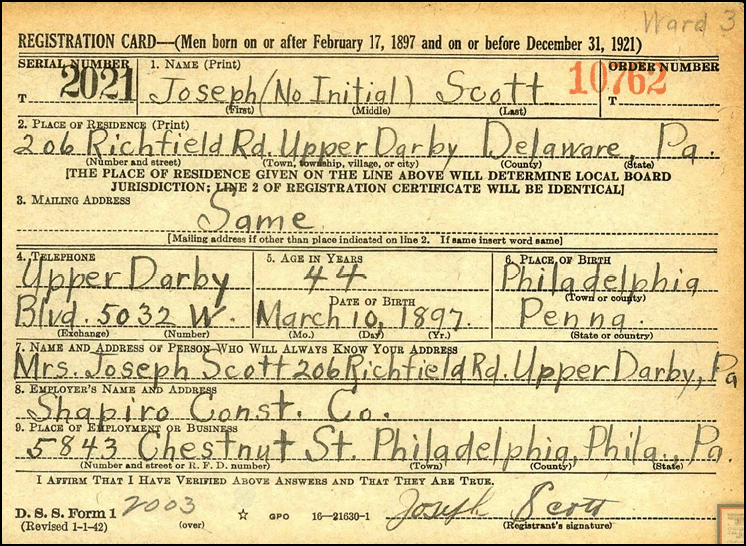 Ward 3
REGISTRATION CARD—(Men born on or after February 17, 1897 and on or before December 31, 1921)
SERIAL NUMBER 1. NAME (Print) ORDER NUMBER
T 2021 Joseph (No Initial) Scott 10762 T
(First) (Middle) (Last)
2. PLACE OF RESIDENCE (Print)
206 Richfield Rd. Upper Darby Delaware, Pa.
(Number and street) (Town, township, village, or city) (County) (State)
[THE PLACE OF RESIDENCE GIVEN ON THE LINE ABOVE WILL DETERMINE LOCAL BOARD
JURISDICTION; LINE 2 OF REGISTRATION CERTIFICATE WILL BE IDENTICAL]
3. MAILING ADDRESS
Same
[Mailing address if other than place indicated on line 2. If same insert word same]
4. TELEPHONE 5. AGE IN YEARS 6. PLACE OF BIRTH
Upper Darby 44 Philadelphia
(Town or county)
DATE OF BIRTH
Blvd. 5032 W. March 10, 1897. Penna.
(Exchange) (Number) (Mo.) (Day) (Yr.) (State or country)
7. NAME AND ADDRESS OF PERSON WHO WILL ALWAYS KNOW YOUR ADDRESS
Mrs. Joseph Scott 206 Richfield Rd. Upper Darby, Pa
8. EMPLOYER'S NAME AND ADDRESS
Shapiro Const. Co.
9. PLACE OF EMPLOYMENT OR BUSINESS
5843 Chestnut St. Philadelphia, Phila., Pa.
(Number and street or R. F. D. number) (Town) (County) (State)
I AFFIRM THAT I HAVE VERIFIED ABOVE ANSWERS AND THAT THEY ARE TRUE.
D. S. S. Form 1 2003 Joseph Scott
(Revised 1-1-42) (over) ☆ GPO 16—21630-1 (Registrant's signature)